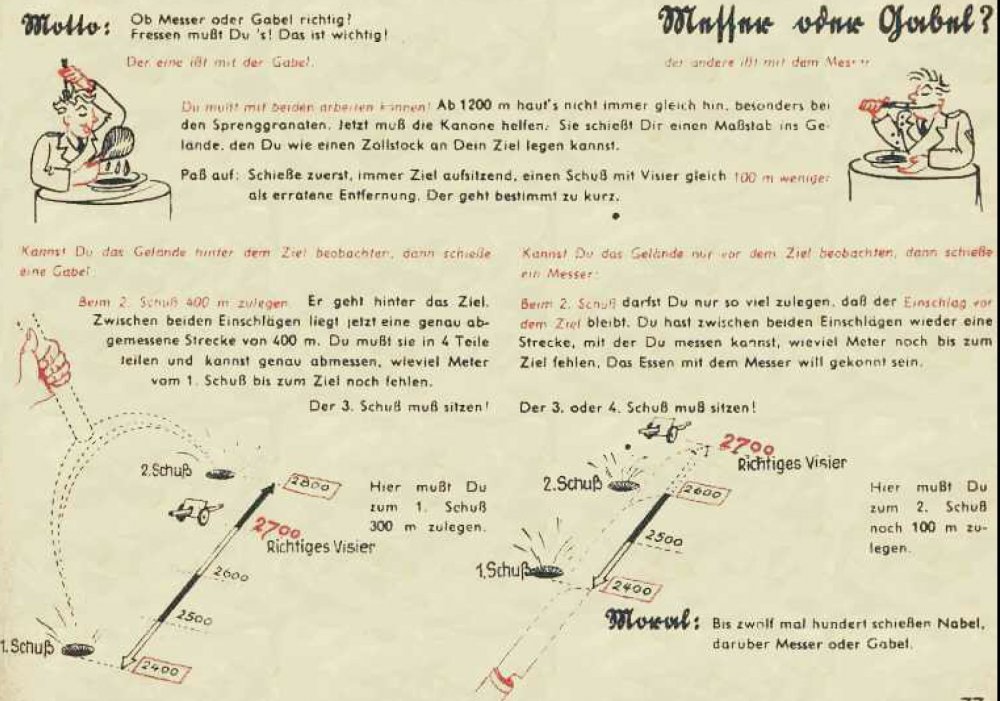 Motto:
Ob Messer oder Gabel richtig!
Fressen mußt Du 's! Das ist wichtig!
Messer oder Gabel?
Der eine ißt mit der Gabel.
der andere ißt mit dem Messer
Du mußt mit beiden arbeiten können! Ab 1200 m haut's nicht immer gleich hin, besonders bei
den Sprenggranaten. Jetzt muß die Kanone helfen. Sie schießt Dir einen Maßstab ins Ge-
lände, den Du wie einen Zollstock an Dein Ziel legen kannst.
Paß auf: Schieße zuerst, immer Ziel aufsitzend, einen Schuß mit Visier gleich 100 m weniger
als erratene Entfernung. Der geht bestimmt zu kurz.
Kannst Du das Gelände hinter dem Ziel beobachten, dann schieße
eine Gabel:
Beim 2. Schuß 400 m zulegen. Er geht hinter das Ziel.
Zwischen beiden Einschlägen liegt jetzt eine genau ab-
gemessene Strecke von 400 m. Du mußt sie in 4 Teile
teilen und kannst genau abmessen, wieviel Meter
vom 1. Schuß bis zum Ziel noch fehlen.
Der 3. Schuß muß sitzen!
2. Schuß
2800
2700
Richtiges Visier
2600
2500
1. Schuß
2400
Hier mußt Du
zum 1. Schuß
300 m zulegen.
Kannst Du das Gelände nur vor dem Ziel beobachten, dann schieße
ein Messer:
Beim 2. Schuß darfst Du nur so viel zulegen, daß der Einschlag vor
dem Ziel bleibt. Du hast zwischen beiden Einschlägen wieder eine
Strecke, mit der Du messen kannst, wieviel Meter noch bis zum
Ziel fehlen. Das Essen mit dem Messer will gekonnt sein.
Der 3. oder 4. Schuß muß sitzen!
2700
Richtiges Visier
2. Schuß
2600
2500
1. Schuß
2400
Hier mußt Du
zum 2. Schuß
noch 100 m zu-
legen.
Moral: Bis zwölf mal hundert schießen Nabel,
darüber Messer oder Gabel.